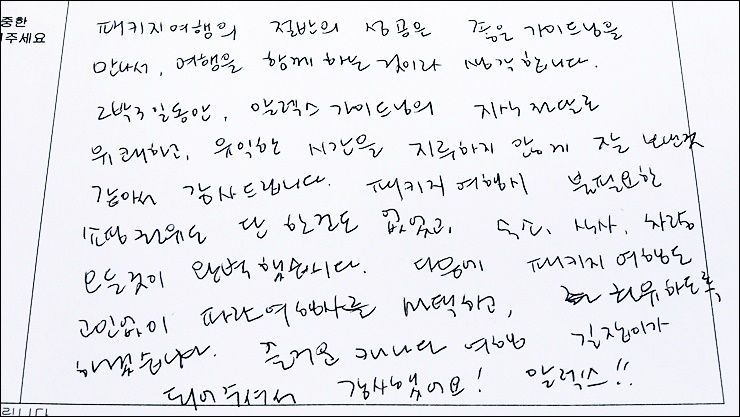 중한
주세요
패키지여행의 절반의 성공은 좋은 가이드님을
만나서, 여행을 함께 하는 것이라 생각합니다.
2박3일동안, 알렉스 가이드님의 지식 전달로
유쾌하고, 유익한 시간을 지루하지 않게 잘 보낸것
같아서 감사드립니다. 패키지 여행시 불필요한
쇼핑 권유도 단 한건도 없었고, 숙소, 식사, 차량
모든것이 완벽했습니다. 다음에 패키지 여행도
고민없이 파란여행사를 선택하고, 권유하도록
하겠습니다. 즐거운 캐나다 여행 길잡이가
되어주셔서 감사했어요! 알렉스!!